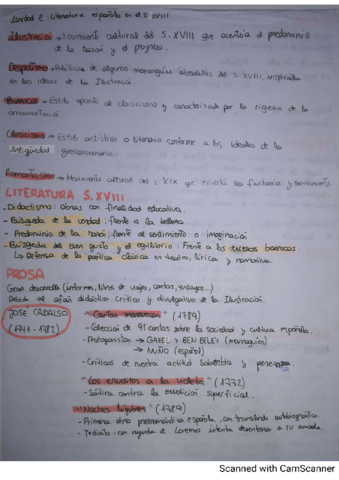 Unidad 2: Literatura española en el S. XVIII
Ilustración → Movimiento cultural del S. XVIII que acentúa el predominio
de la razón y el progreso.
Despotismo → Políticas de algunas monarquías absolutas del S. XVIII, inspiradas
en las ideas de la Ilustración
Barroco → Estilo opuesto al clasicismo y caracterizado por la riqueza de la
ornamentación
Clasicismo → Estilo artístico o literario conforme a los ideales de la
Antigüedad grecorromana.
Romanticismo → Movimiento cultural del S. XIX que fantasía y sentimiento.
LITERATURA S.XVIII
- Didactismo: obras con finalidad educativa.
- Búsqueda de la verdad: frente a la belleza.
- Predominio de la razón: frente al sentimiento o imaginación
- Búsqueda del buen gusto y el equilibrio: Frente a los excesos barrocos.
Lo Defensa de la poética clásica en teatro, lírica y narrativa.
PROSA
Gran desarrollo (informes, libros de viajes, cartas, ensayos...)
Debido al afán didáctico crítico y divulgativo de la Ilustración.
JOSÉ CADALSO
(1741 - 1782)
"Cartas marruecas" (1789)
- Colección de 91 cartas sobre la sociedad y cultura española.
- Protagonistas → GAZEL Y BEN BELEY (marroquíes)
→ NUÑO (español)
- Críticas de nuestra actitud soberbia y perezosa
"Los eruditos a la violeta" (1772)
- Sátira contra la erudición superficial.
"Noches lúgubres" (1789)
- Primera obra prerromántica española, con trasfondo autobiográfico.
- Tediato con ayuda de Lorenzo intenta desenterrar a su amada.
Scanned with CamScanner